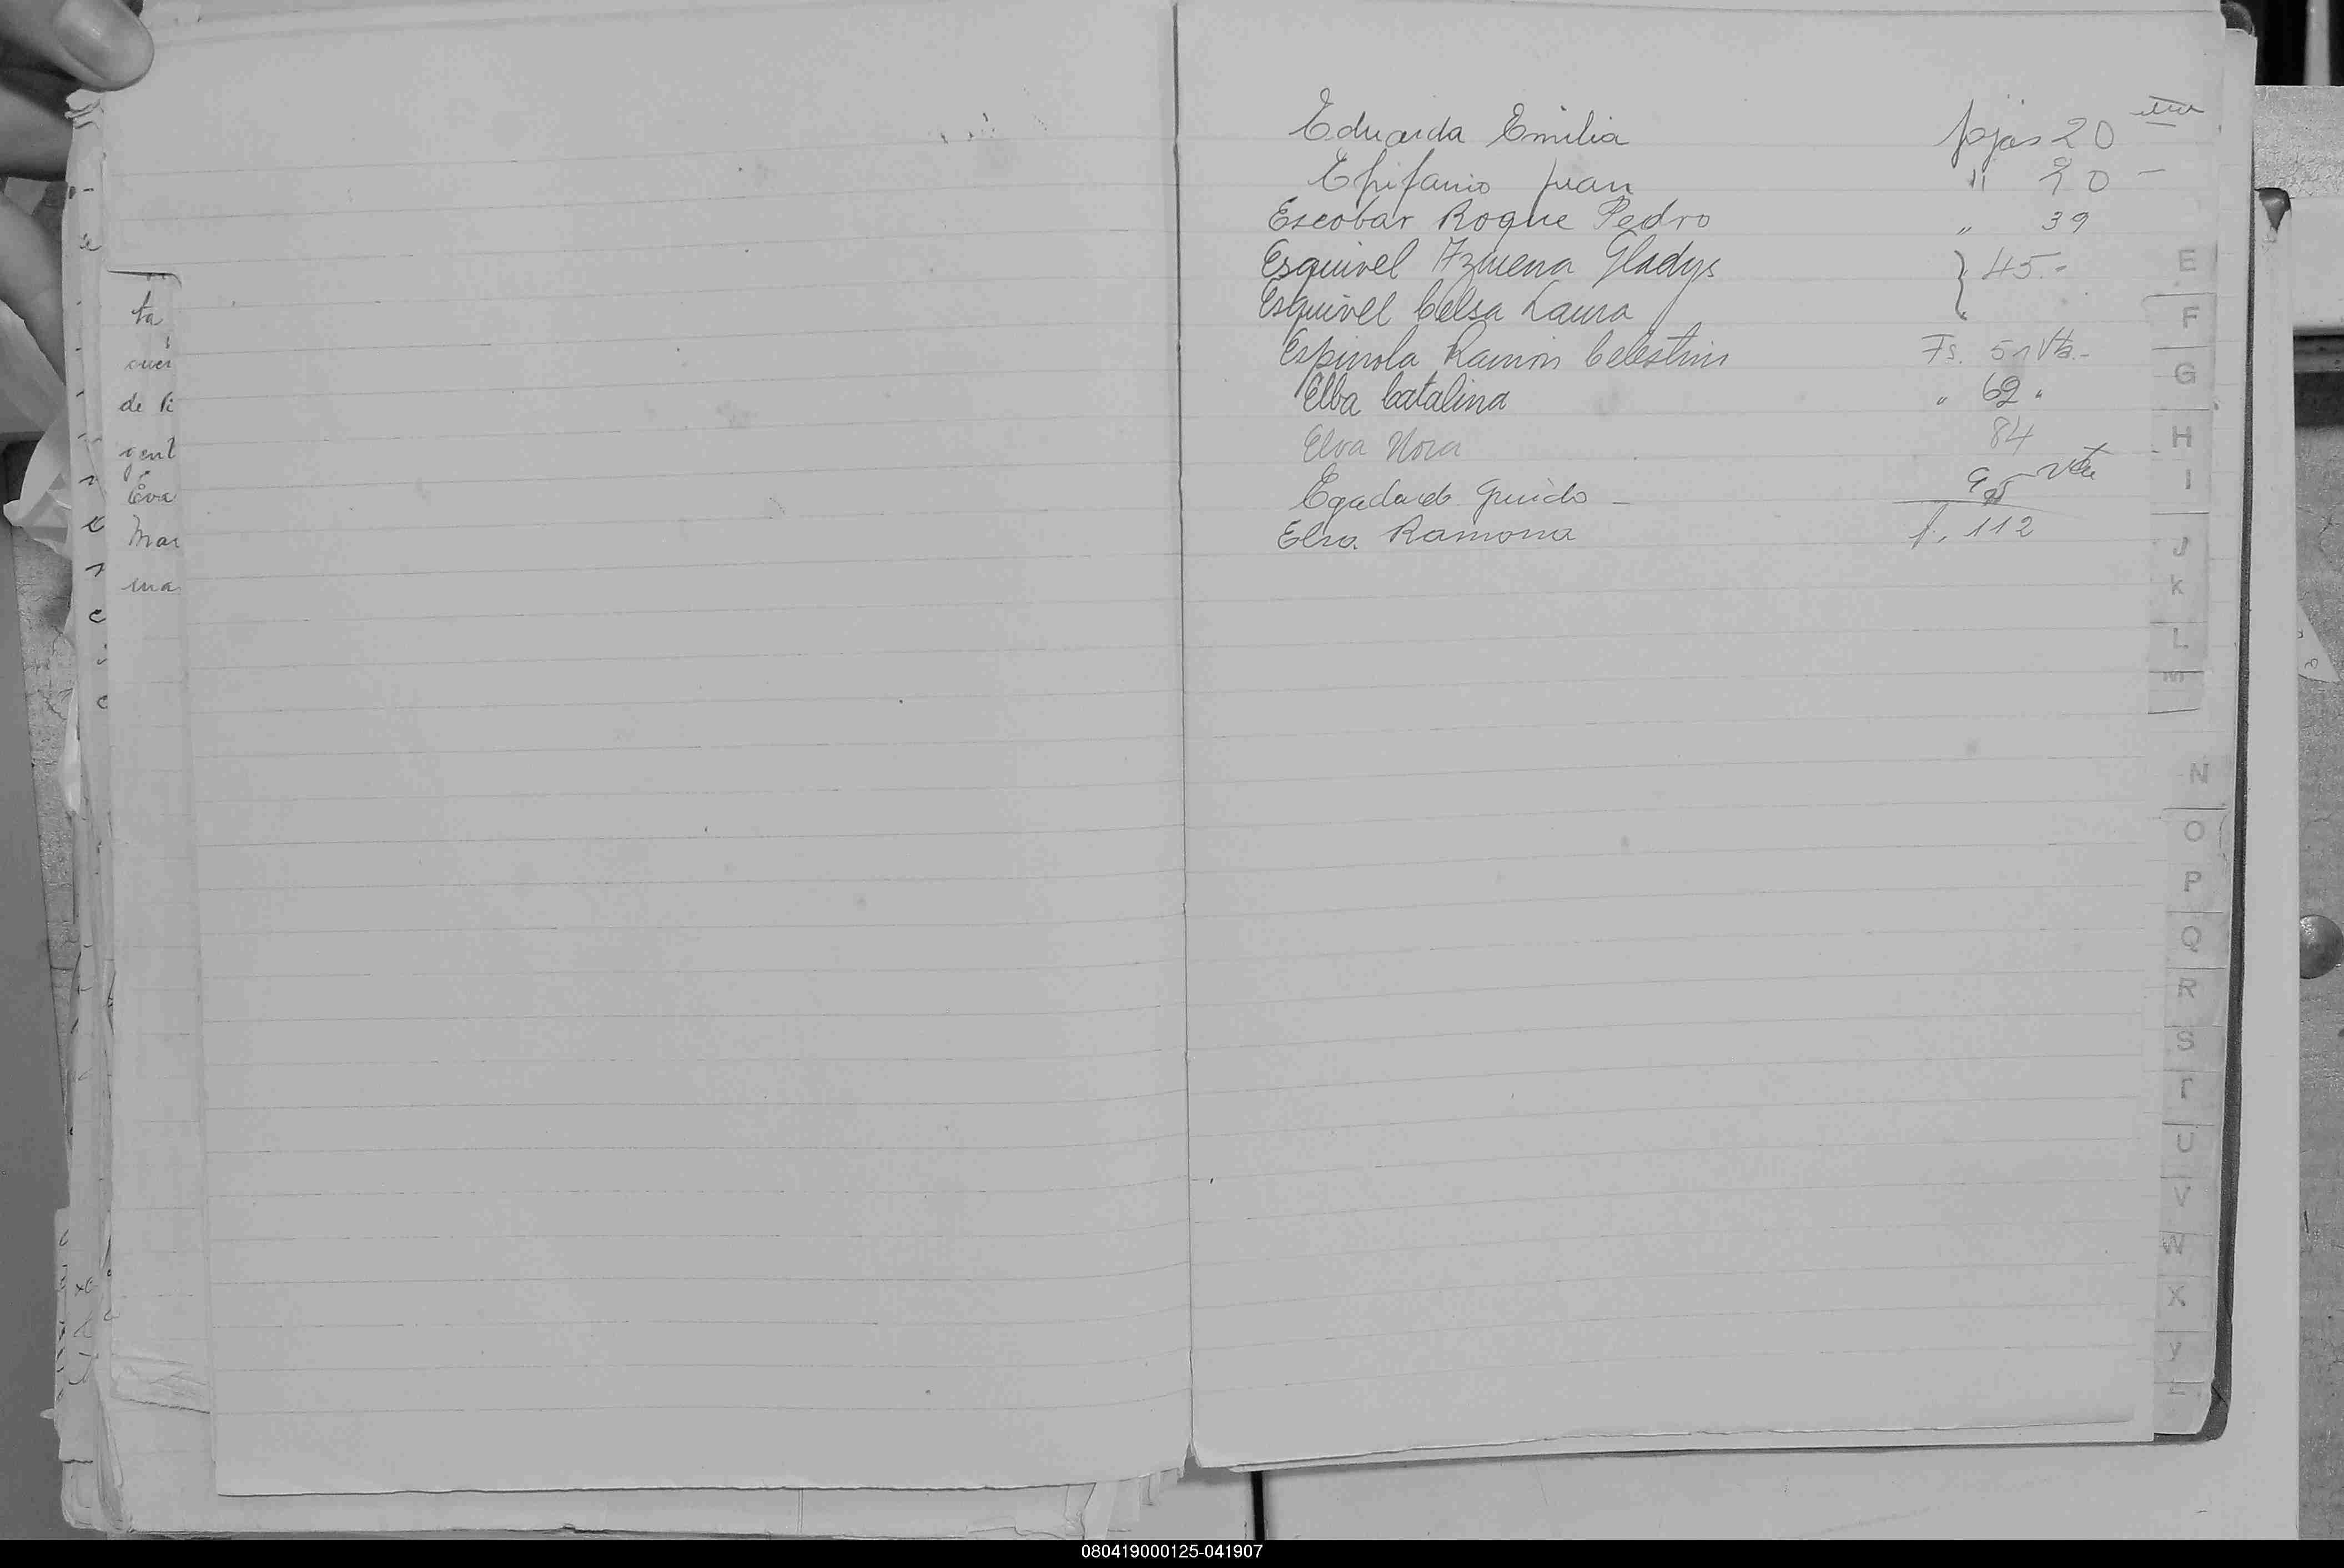 ta
de Pi
gent
Eva
Mar
ma
Eduarda Emilia pjas 20
Epifanio Juan " 20 -
Escobar Roque Pedro " 39
Esquivel Azucena Gladys } 45.-
Esquivel Celsa Laura
Espinola Ramón Celestino Fs. 51 Vta.-
Elba Catalina " 62 "
Elva Nora 84
Guido - Vta
Elsa Ramona f. 112
E
F
G
H
I
J
K
L
M
N
O
P
Q
R
S
T
U
V
W
X
Y
Z
080419000125-041907